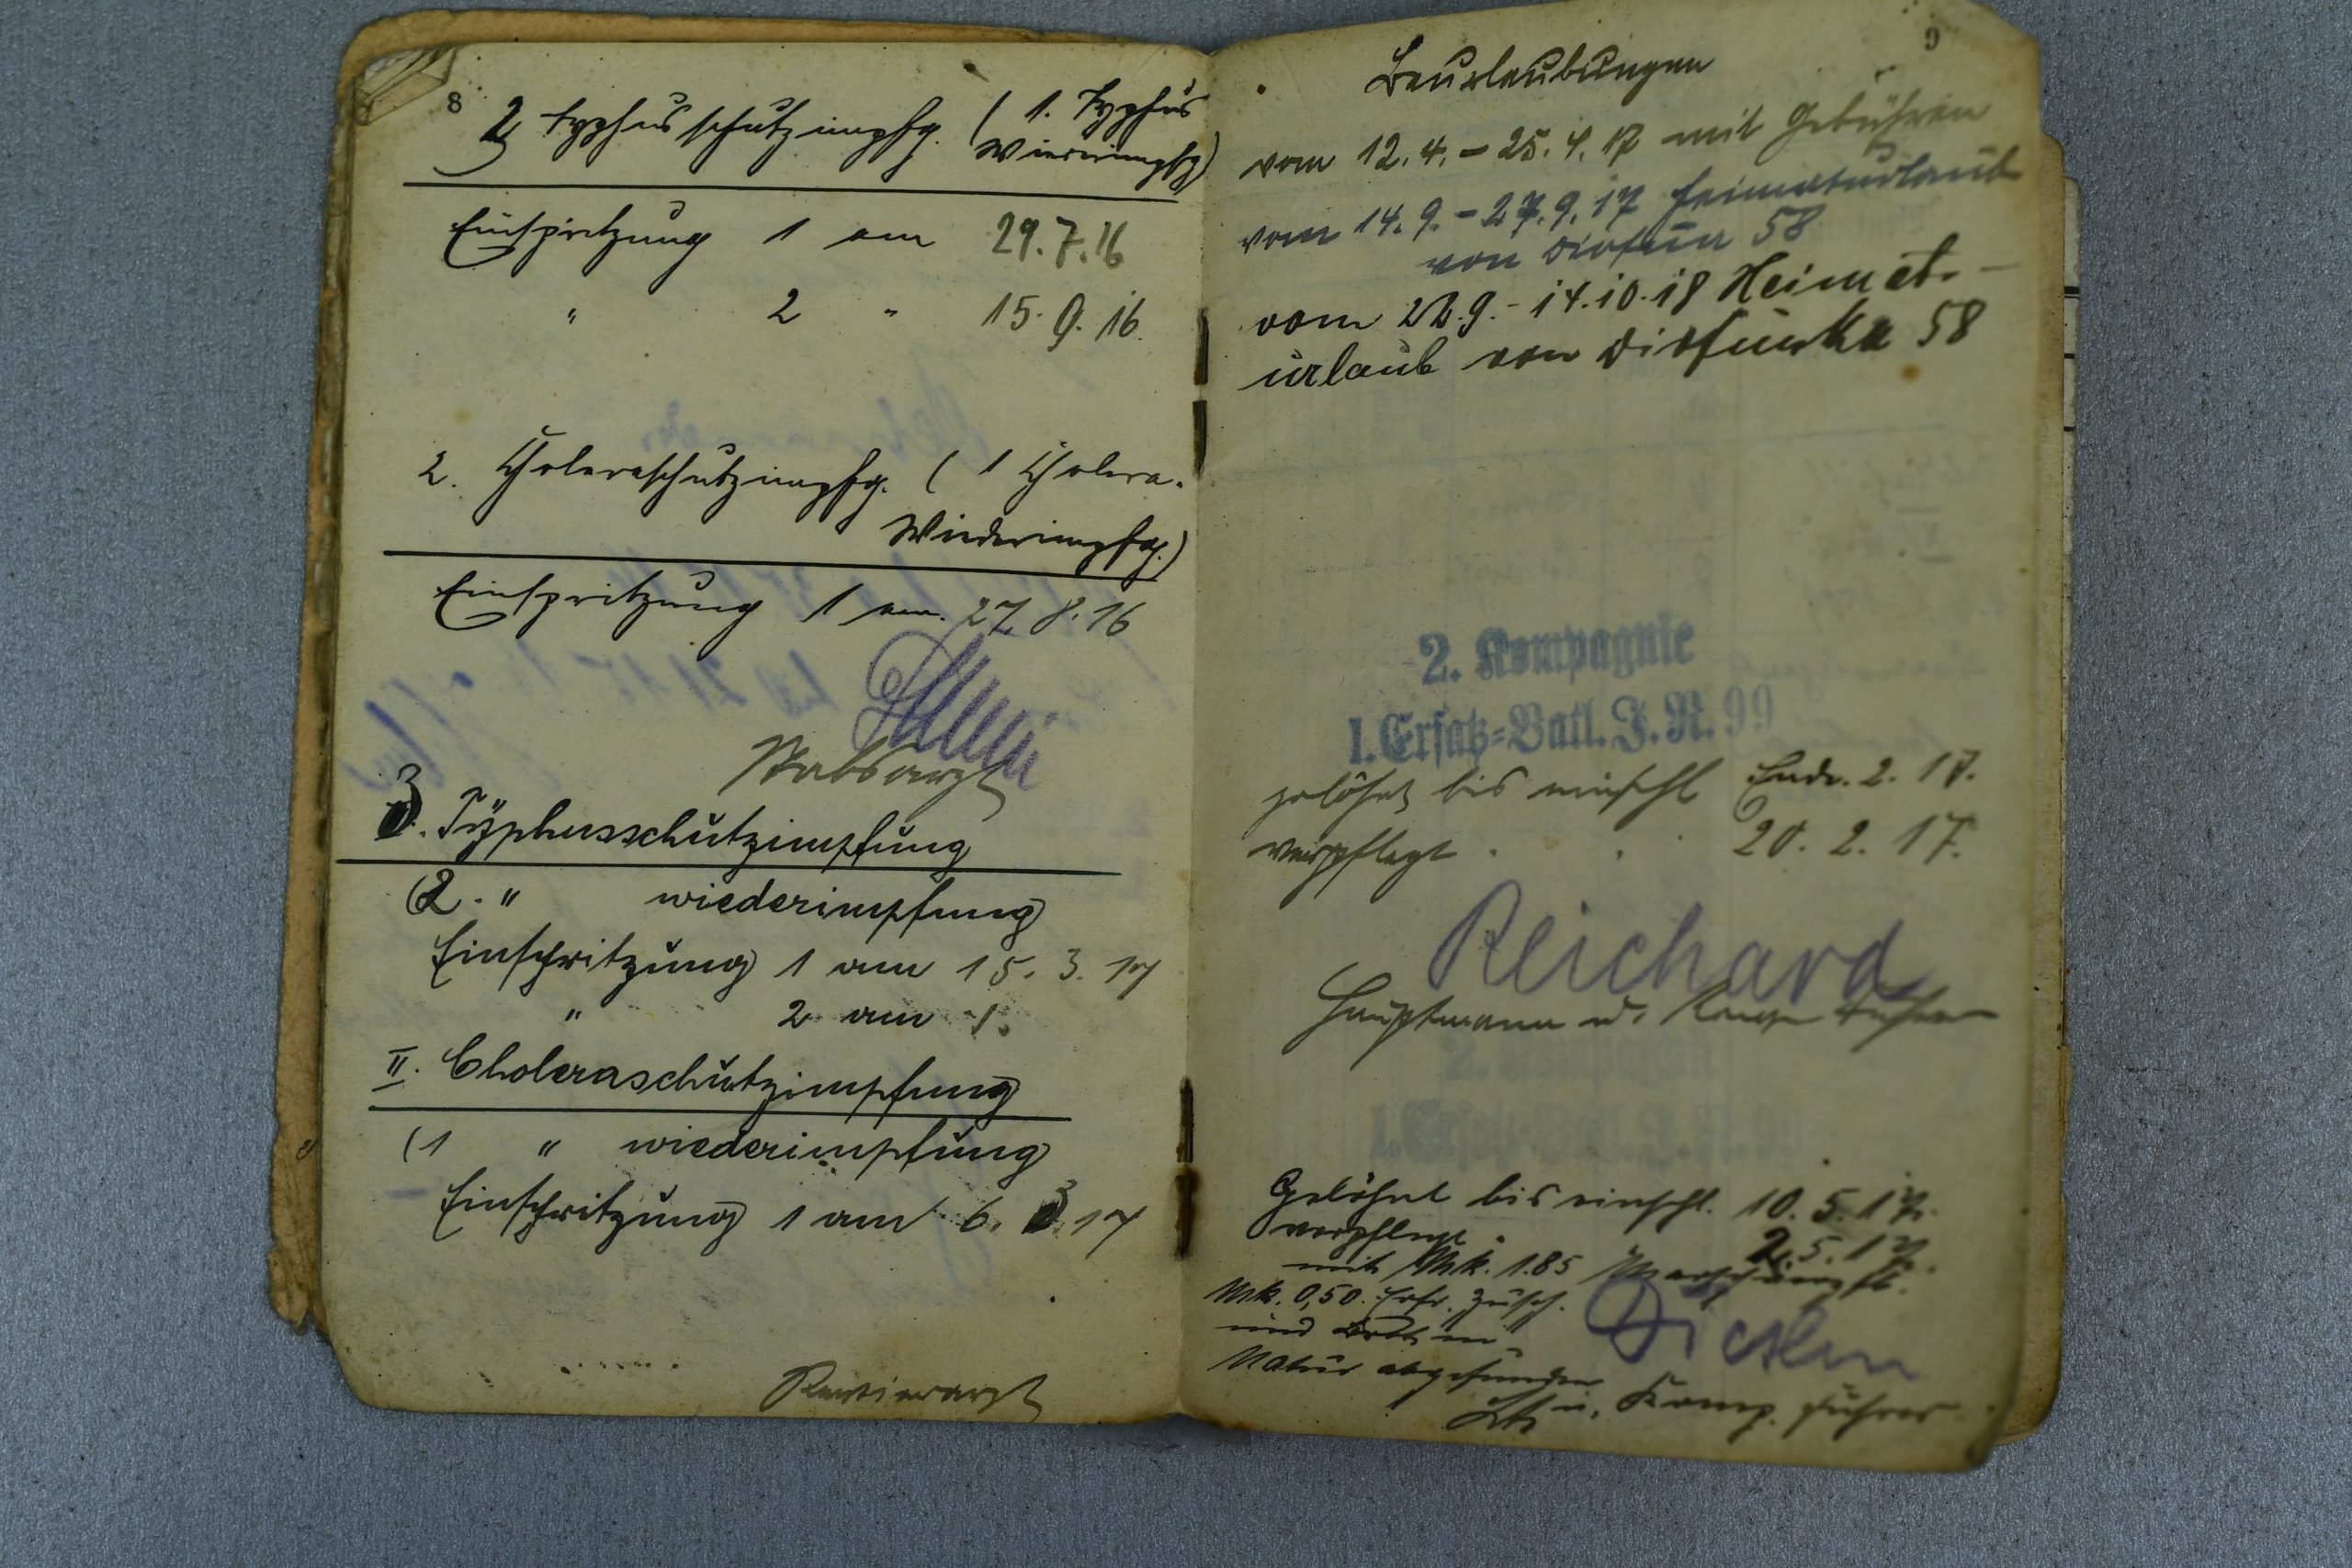 8
2) Typhusschutzimpfg. (1. Typhus
Wiederimpfg)
Einspritzung 1 am 29.7.16
" 2 " 15.9.16.
2. Choleraschutzimpfg. (1 Cholera-
Wiederimpfg.)
Einspritzung 1 am 27.8.16
Stabsarzt
3. Typhusschutzimpfung
(2. " wiederimpfung)
Einspritzung 1 am 15.3.17
" 2 am 1.
II. Choleraschutzimpfung
(1 " wiederimpfung)
Einspritzung 1 am 6.3.17
Revierarzt
9
Beurlaubungen
vom 12.4. - 25.4.17 mit Gebühren
vom 14.9. - 27.9.17 Heimaturlaub
von Divfuka 58
vom 22.9. - 14.10.18 Heimat-
urlaub von Divfunka 58
2. Kompagnie
1. Ersatz=Batl. J. R. 99
gelöhnt bis einschl Ende. 2. 17.
verpflegt " " 20. 2. 17.
Reichard
Hauptmann u. Komp Führer
Gelöhnt bis einschl. 10. 5. 17.
verpflegt " 2. 5. 17.
mit Mk. 1.85 Marschverpfl.
Mk. 0,50 Erfr. Zusch.
und Brot in
Natur abgefunden
Lt. u. Komp. Führer